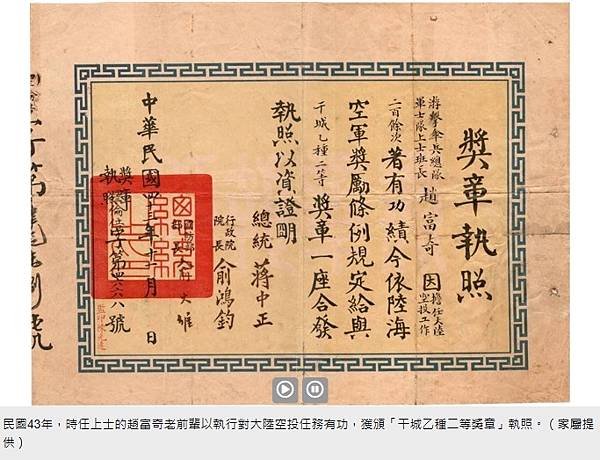 獎章執照
游擊傘兵總隊
軍士隊上士班長
趙富奇 因
擔任大陸
空投工作
二百餘次 著有功績今依陸海
空軍獎勵條例規定給與
干城乙種二等 獎章一座合發
執照以資證明
總統 蔣中正
行政院
院長 俞鴻鈞
國防部
部長 大維
中華民國四三年十月 日
獎章
執照 字第號
監印
民國43年，時任上士的趙富奇老前輩以執行對大陸空投任務有功，獲頒「干城乙種二等獎章」執照。（家屬提
供）